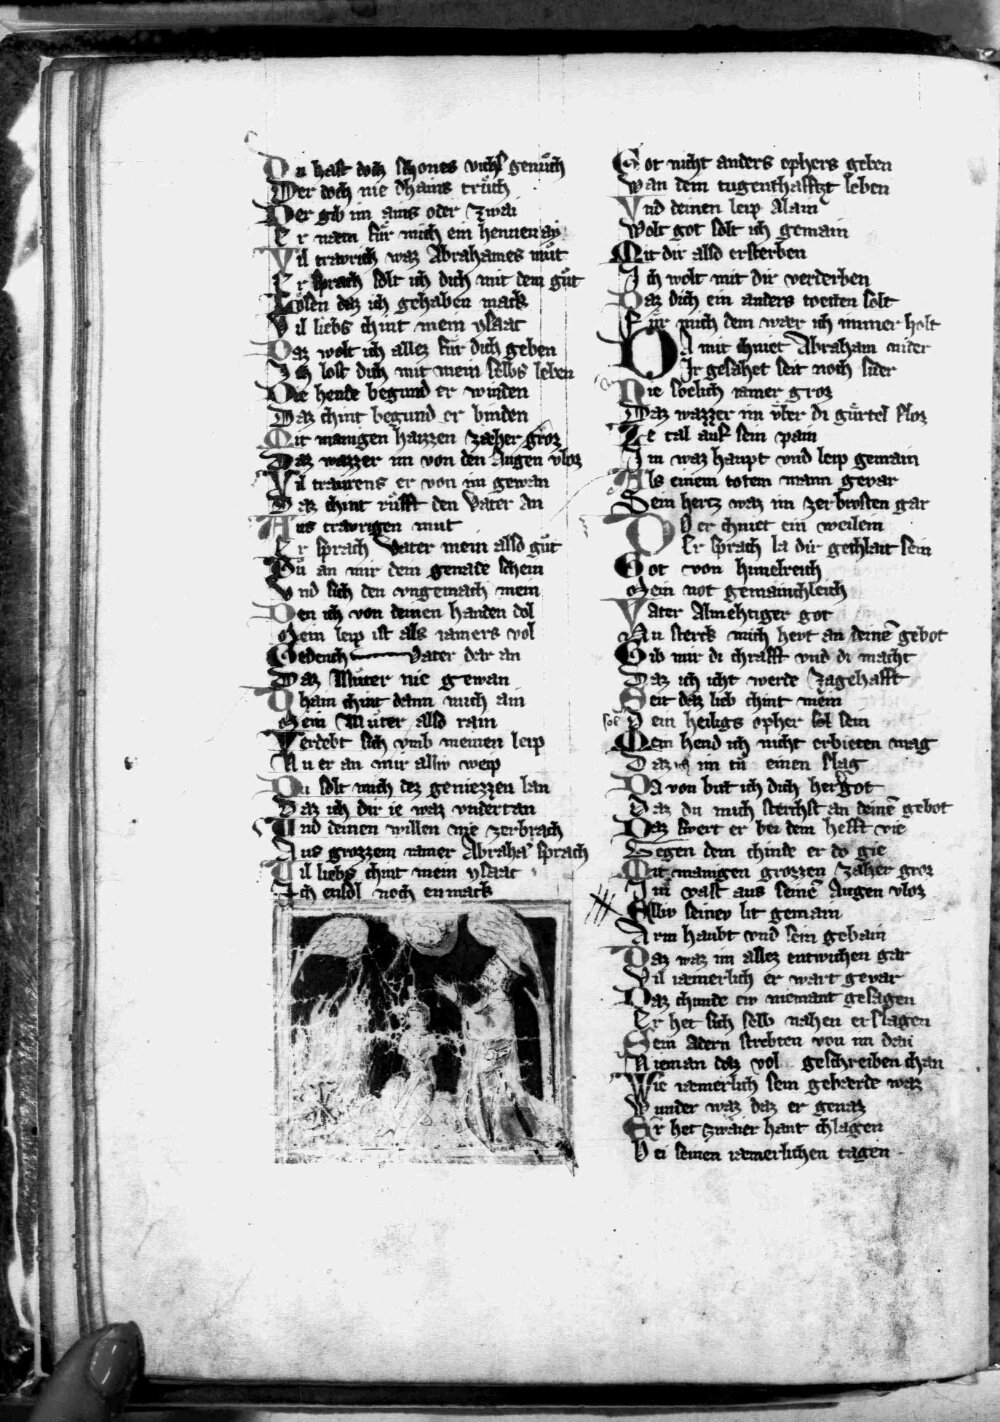 Du hast doch schones vichs genuͦch
Der doch nie dhains truͦch
Der gib im ains oder zwai
Er naem fuͤr mich ein hennen ay
Vil trawrich waz Abrahames muͦt
Er sprach solt ich dich mit dem guͦt
Loͤsen daz ich gehaben mack
Vil liebs chint mein ysaac
Daz wolt ich allez fur dich geben
Ich lost dich mit mein selbs leben
Die hende begund er winden
Daz chint begund er binden
Mit manigen haizzen zaeher groz
Daz wazzer im von den Augen vloz
Vil traurens er von im gewan
Daz chint ruͤfft den Vater an
Aus trawrigen mut
Er sprach Vater mein alsd guͦt
Tuͦ an mir dein genade schein
Vnd sich den vngemach mein
Den ich von deinen handen dol
Mein leip ist als iamers vol
Gedench Vater dar an
Daz Muter nie gewan
Dhain chint dann mich ain
Mein Muter alsd rain
Verdebt sich vmb meinen leip
Nu er an mir alliv weip
Du solt mich dez geniezzen lan
Daz ich dir ie waz vndertan
Und deinen willen nie zerbrach
Aus grozzem iamer Abraham sprach
Vil liebs chint mein ysaac
Ich ensol noch enmack
Got nicht anders ophers geben
Wan dein tugenthafftzt leben
Vnd deinen leip Alain
Wolt got solt ich gemain
Mit dir alsd ersterben
Ich wolt mit dir verderben
Daz dich ein anders toeten solt
Fuͤr mich dem waer ich immer holt
DA mit chniet Abraham nider
Ir gesahet seit noch sider
Nie soelich iamer groz
Daz wazzer im vͤber di guͤrtel floz
Ze tal auf sein pain
Im waz haupt vnd leip gemain
Als einem totem mann gevar
Sein hertz waz im zerbrosten gar
DO er chniet ein weilein
Er sprach la dir gechlait sein
Got von himelreich
Mein not gemainchleich
Vater Almehtiger got
Nu sterck mich hevt an deinē gebot
Gib mir di chrafft vnd di macht
Daz ich icht werde zagehafft
Seit daz lieb chint mein
Dein heiligs opher sol sein
Mein hend ich nicht erbieten mag
Daz ich im tuͤ einen slag
Da von but ich dich her got
Daz du mich sterchst an deinē gebot
Daz swert er bei dem hefft vie
Gegen dem chinde er do gie
Mit manigen grozzen zaher groz
Im vast aus seinē Augen vloz
Alliv seinev lit gemain
Arm haubt vnd sein gebain
Daz waz im allez entwichen gar
Vil iaemerlich er wart gevar
Daz chunde ew niemant gesagen
Er het sich selb nahen erslagen
Sein adern strebten von im dan
Nieman daz vol geschreiben chan
Wie iaemerlich sein gebaerde waz
Wunder waz daz er genaz
Er het swaͤrer hant chlagen
Bei seinen iaemerlichen tagen